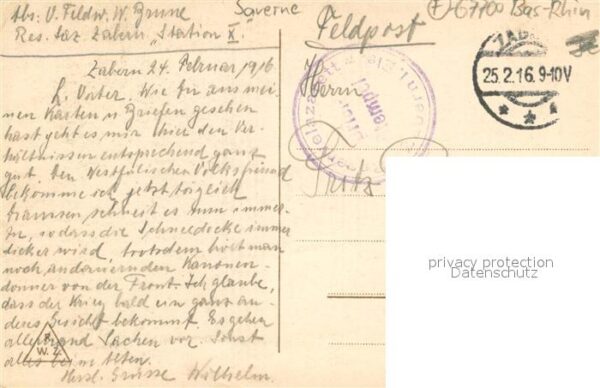 Abs: V. Feldw. W. Brune
Res. Laz. Zabern "Station X."
Saverne
(F) 67700 Bas-Rhin
Feldpost
Zabern 24. Februar 1916
L. Vater. Wie Du aus mei-
nen Karten u Briefen gesehen
hast geht es mir hier den Ver-
hältnissen entsprechend ganz
gut. Den Westfälischen Volksfreund
bekomme ich jetzt täglich
draussen schneit es nun immer-
zu, sodass die Schneedecke immer
dicker wird, trotzdem hört man
noch andauernden Kanonen-
donner von der Front. Ich glaube,
dass der Krieg bald ein ganz an-
deres Gesicht bekommt. Es gehen
allerhand Sachen vor. Sonst
alles beim Alten.
Herzl. Grüsse Wilhelm.
Herrn
Fritz
ZABERN
25.2.16.9-10V
W. Z.
privacy protection
Datenschutz